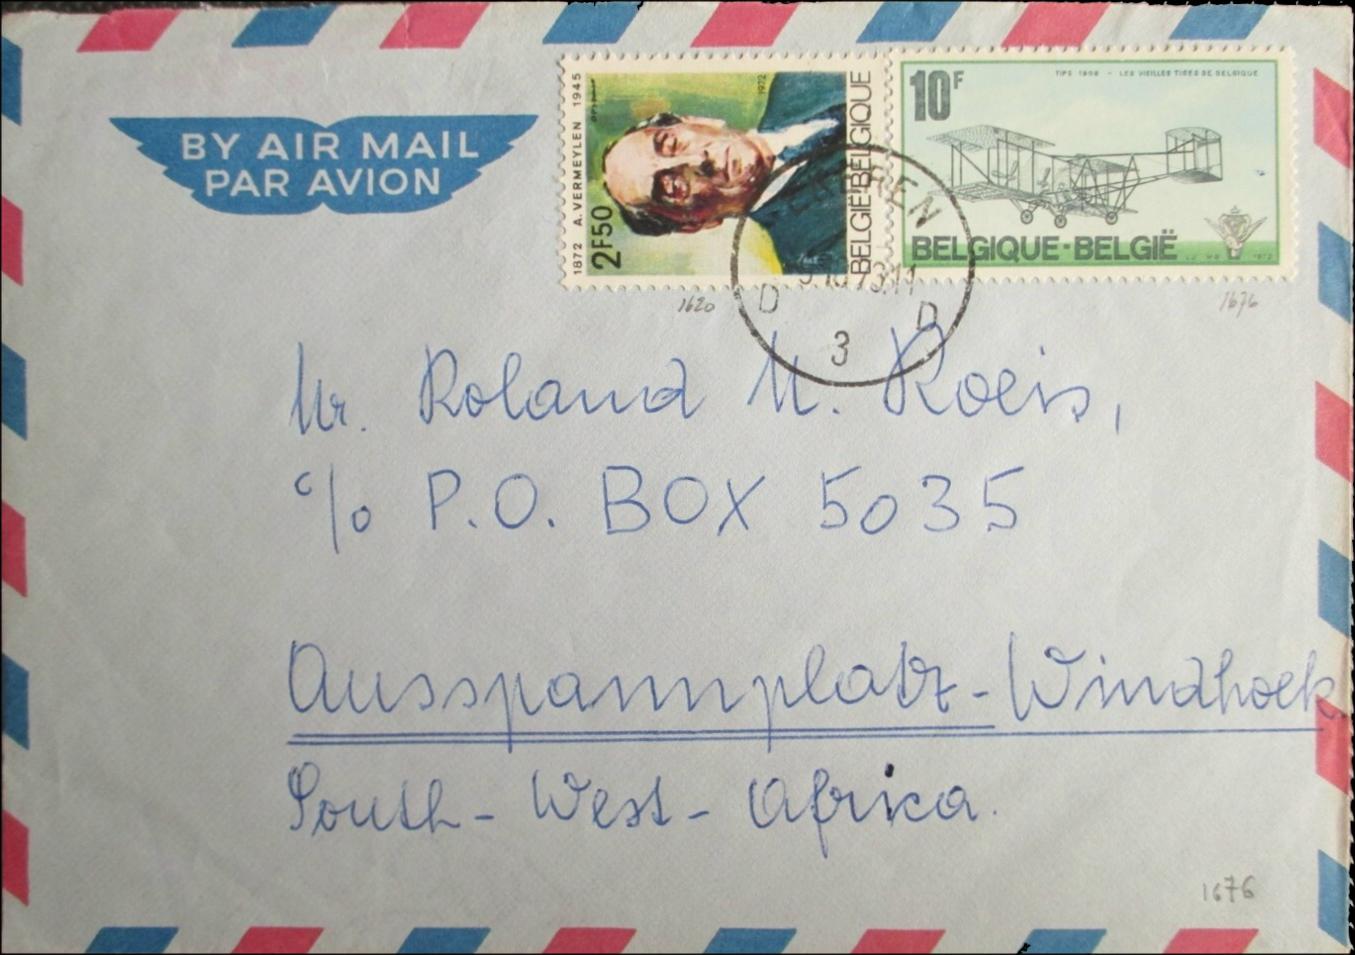 BY AIR MAIL
PAR AVION
1872 A. VERMEYLEN 1945
2F50
1972
BELGIË-BELGIQUE
10F
TIPS 1908 - LES VIEILLES TIGES DE BELGIQUE
BELGIQUE-BELGIË
1972
D D
3
1620
1676
Mr. Roland M. Roeis,
c/o P.O. BOX 5035
Ausspannplatz - Windhoek
South - West - Africa.
1676